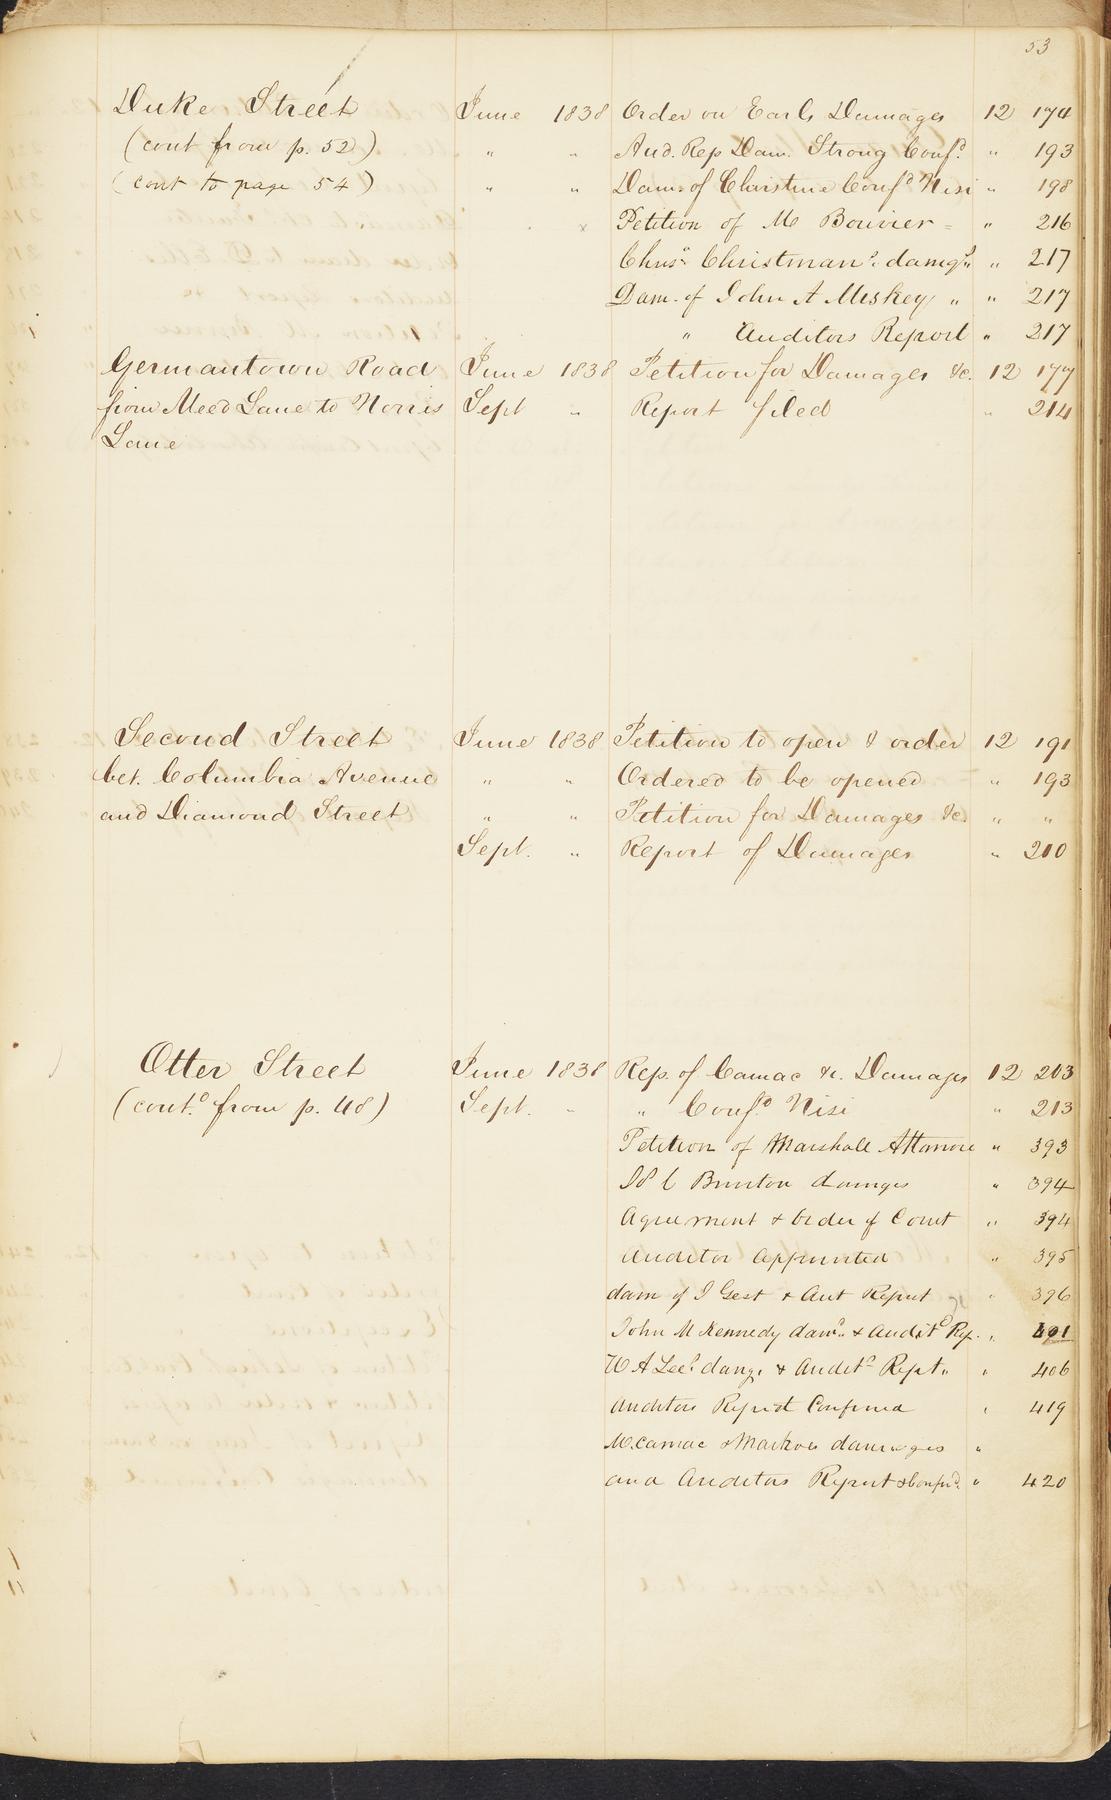 53
Duke Street June 1838 Order on Earls Damages 12 174
(cont from p. 52) " " Aud. Rep Dam. Strong Confd. " 193
(cont to page 54) " " Dam. of Christine Confd Nisi " 198
Petition of M Bouvier " 216
Chas. Christmans. damgs " 217
Dam. of John A Miskey " " 217
" Auditors Report " 217
Germantown Road June 1838 Petition for Damages &c. 12 177
from Meed Lane to Norris Sept " Report filed " 214
Lane
Second Street June 1838 Petition to open & order 12 191
bet. Columbia Avenue " " Ordered to be opened " 193
and Diamond Street " " Petition for Damages &c. " "
Sept. " Report of Damages " 210
Otter Street June 1838 Rep. of Camac &c. Damages 12 203
(contd. from p. 48) Sept. " " Confd Nisi " 213
Petition of Marshall Attamore " 393
Brinton damges " 394
Agreement & Order of Court " 394
Auditor Appointed " 395
dam of J Gest & Aut Report " 396
John M Kennedy dams. & Audits Rep. " 401
W A Lees damg. & Audits Rept. " 406
Auditors Report Confirmed " 419
M. Camac & Markoes damages "
and Auditors Report & Confd. " 420